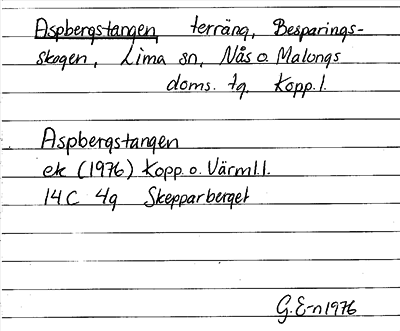 Aspbergstangen, terräng, Besparings-
skogen, Lima sn, Nås o. Malungs
doms. tg. Kopp. l.
Aspbergstangen
ek (1976) Kopp. o. Värml. l.
14C 4g Skepparberget
G. E-n 1976